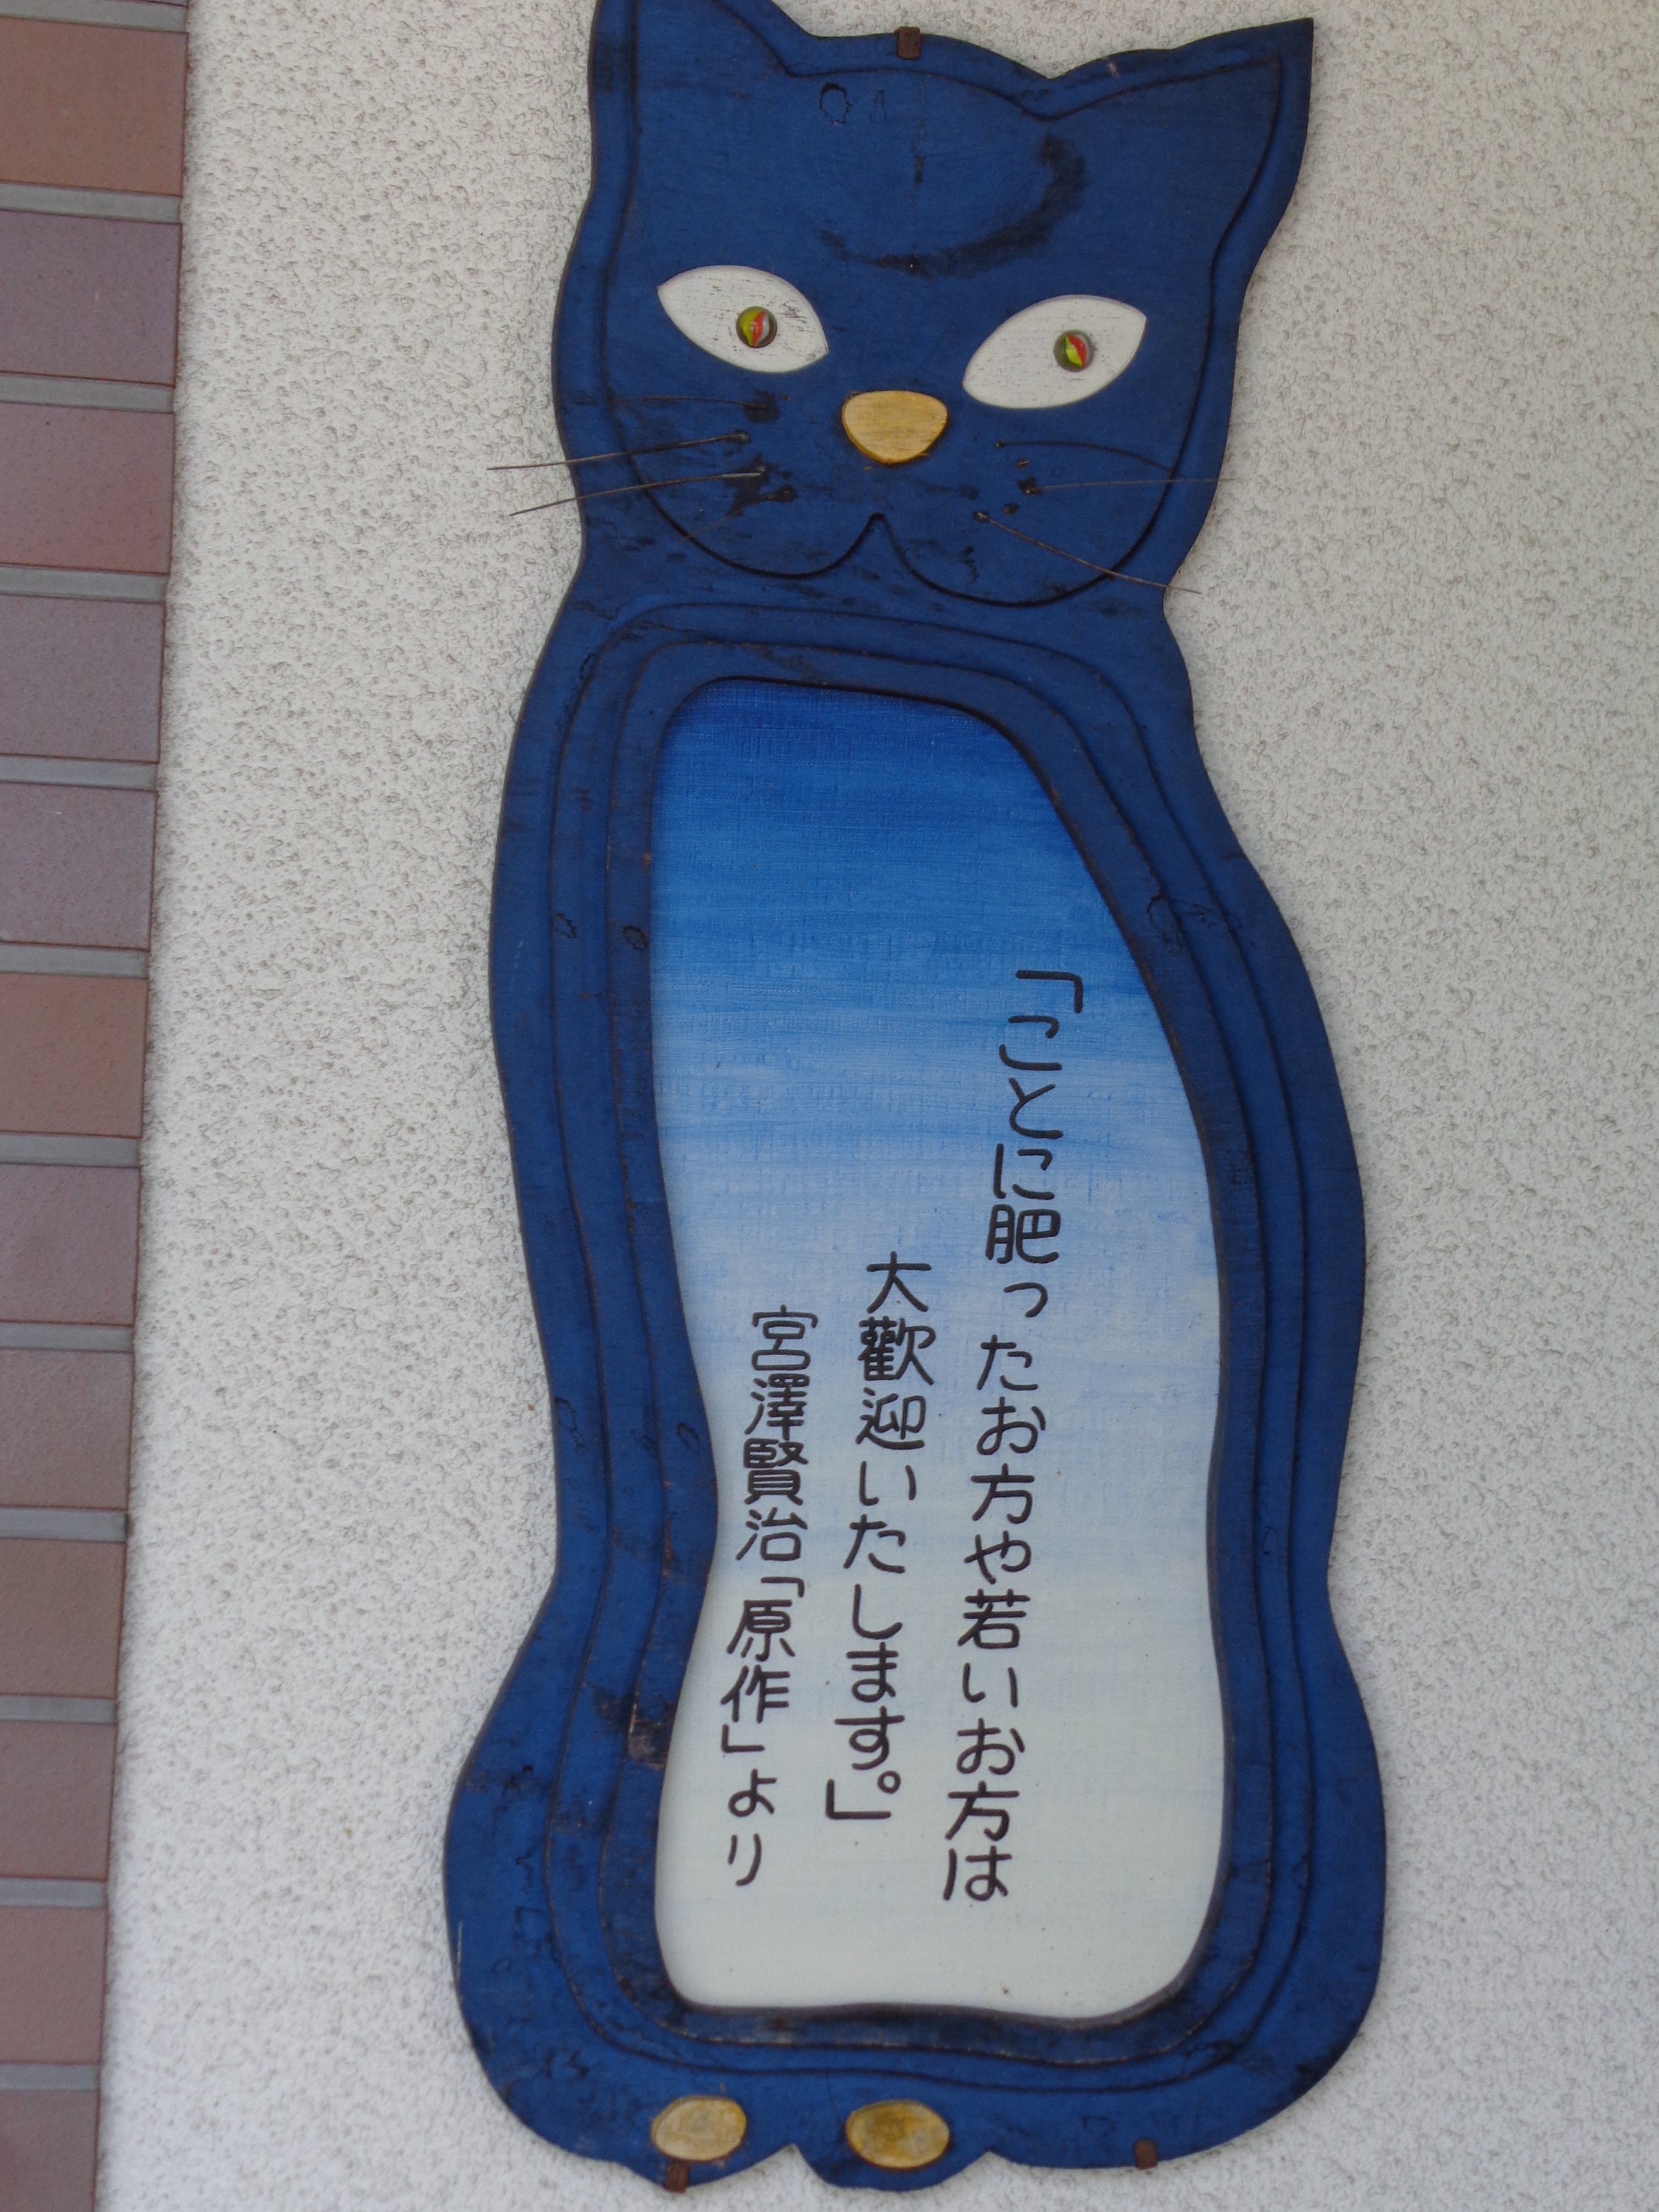 「ことに肥ったお方や若いお方は
大歡迎いたします。」
宮澤賢治「原作」より